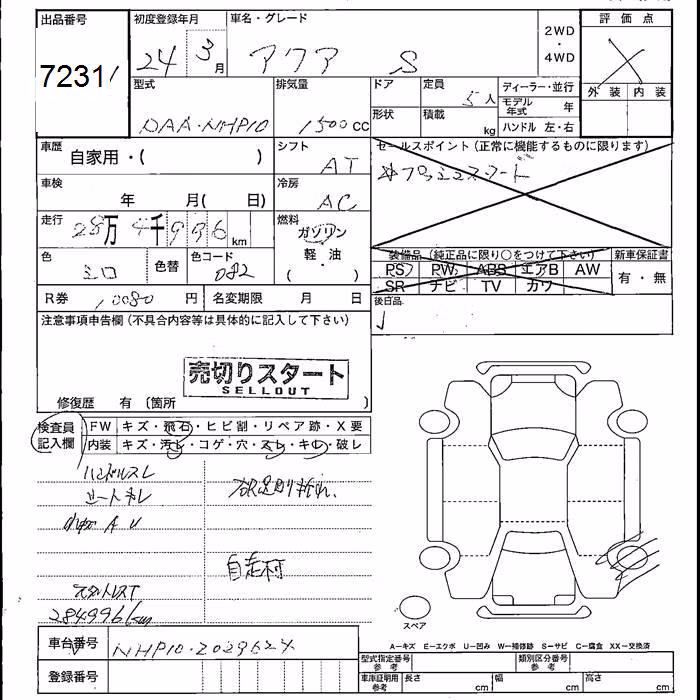 出品番号 初度登録年月 車名・グレード 評価点
7231 24 3月 アクア S 2WD・4WD 外装 内装
型式 排気量 ドア 定員 5人 ディーラー・並行
形状 積載 kg モデル年式 年
DAA-NHP10 1500cc ハンドル 左・右
車歴 自家用・( ) シフト AT セールスポイント(正常に機能するものに限ります)
プッシュスタート
車検 年 月( 日) 冷房 AC
走行 28万4千996km 燃料 ガソリン 軽・油 ( )
装備品(純正品に限り○をつけて下さい) 新車保証書
色 シロ 色替 色コード 082
PS PW ABS エアB AW 有・無
SR ナビ TV カワ
R券 10080円 名変期限 月 日 後日品
注意事項申告欄(不具合内容等は具体的に記入して下さい)
売切りスタート
SELLOUT
修復歴 有(箇所 )
検査員記入欄 FW キズ・飛石・ヒビ割・リペア跡・X要
内装 キズ・汚レ・コゲ・穴・スレ・キレ・破レ
ハンドルスレ
シートキレ
A U
自走
284996km
スペア
車台番号 NHP10-2029624
A-キズ E-エクボ U-凹み W-補修跡 S-サビ C-腐食 XX-交換済
型式指定番号 参考 類別区分番号 参考
登録番号 車庫証明用 参考 長さ cm 幅 cm 高さ cm